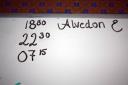 18⁰⁰ Alvedon ξ
22³⁰
07¹⁵